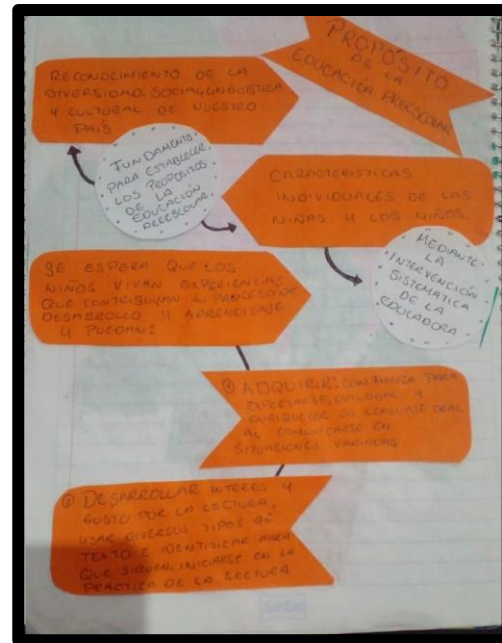 PROPÓSITO
DE LA
EDUCACIÓN PREESCOLAR
RECONOCIMIENTO DE LA
DIVERSIDAD SOCIAL, LINGÜÍSTICA
Y CULTURAL DE NUESTRO
PAÍS
FUNDAMENTO.
PARA ESTABLECER
LOS PROPÓSITOS
DE LA
EDUCACIÓN
PREESCOLAR.
CARACTERÍSTICAS
INDIVIDUALES DE LAS
NIÑAS Y LOS NIÑOS.
MEDIANTE
LA
INTERVENCIÓN
SISTEMÁTICA
DE LA
EDUCADORA
SE ESPERA QUE LOS
NIÑOS VIVAN EXPERIENCIAS
QUE CONTRIBUYAN PROCESO DE
DESARROLLO Y APRENDIZAJE
Y PUEDAN:
① ADQUIRIR: CONFIANZA PARA
EXPRESARSE, DIALOGAR Y
ENRIQUECER SU LENGUAJE ORAL
AL COMUNICARSE EN
SITUACIONES VARIADAS
② DESARROLLAR INTERES Y
GUSTO POR LA LECTURA,
USAR DIVERSOS TIPOS DE
TEXTO E IDENTIFICAR PARA
QUE SIRVEN, INICIARSE EN LA
PRACTICA DE LA LECTURA